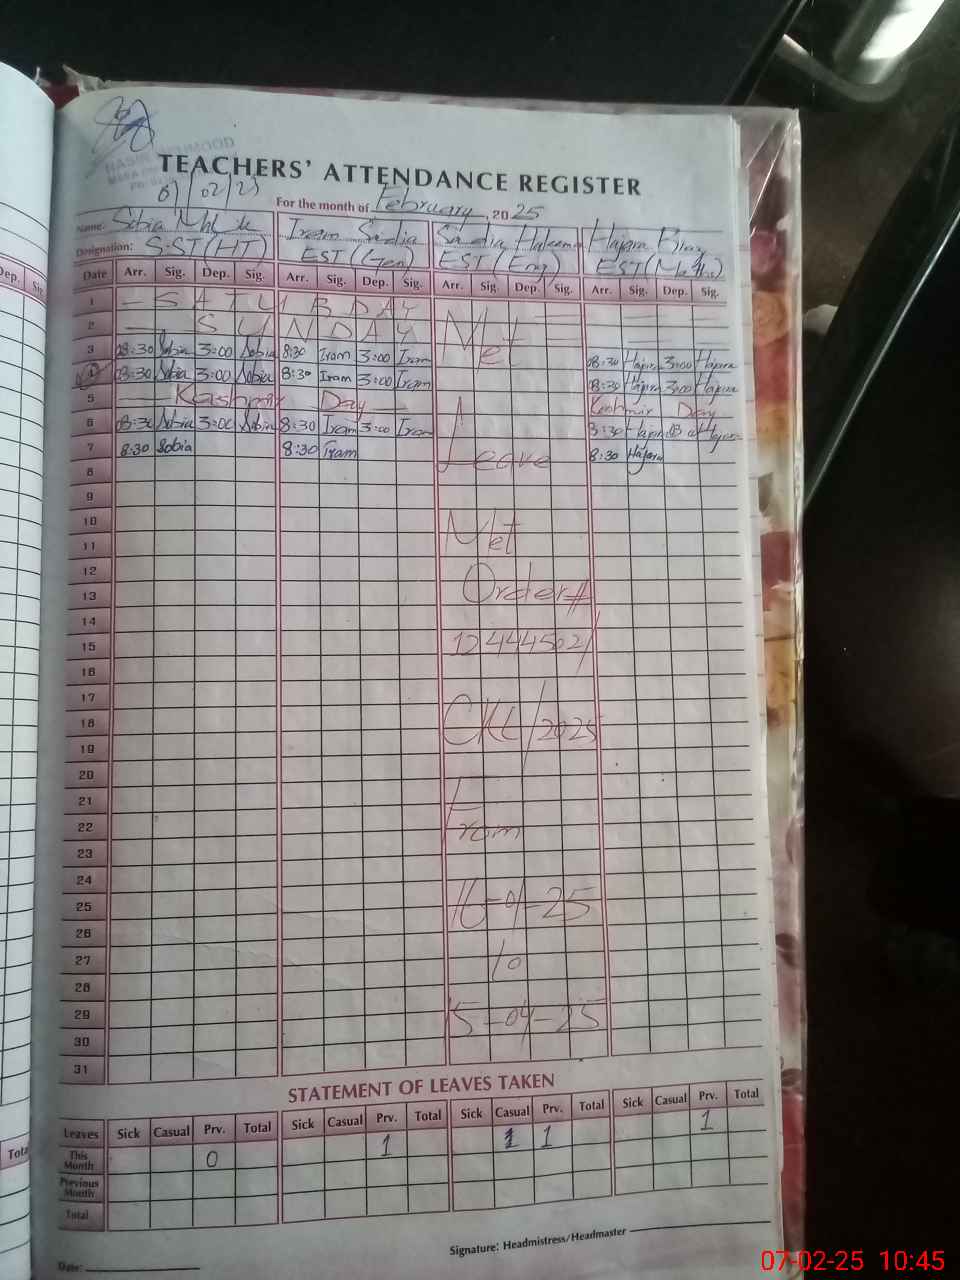 TEACHERS' ATTENDANCE REGISTER
07/02/25
For the month of February, 2025
Name: Sobia Iram Sadia Sadia Haleema Hajara
Designation: S.ST(HT) EST(Gen) EST(Eng) EST(Maths)
Date Arr. Sig. Dep. Sig. Arr. Sig. Dep. Sig. Arr. Sig. Dep. Sig. Arr. Sig. Dep. Sig.
1 SATURDAY
2 SUNDAY Met
3 08:30 Sobia 3:00 Sobia 8:30 Iram 3:00 Iram 08:30 Hajara 3:00 Hajara
4 08:30 Sobia 3:00 Sobia 8:30 Iram 3:00 Iram 08:30 Hajara 3:00 Hajara
5 Kashmir Day Kashmir Day
6 08:30 Sobia 3:00 Sobia 8:30 Iram 3:00 Iram 8:30 Hajara Hajara
7 8:30 Sobia 8:30 Iram Leave 8:30 Hajara
8
9
10
11 Met
12
13 Order#
14
15 124444502/
16
17
18 CKL/2025
19
20
21
22 From
23
24
25 16-01-25
26
27 To
28
29 15-04-25
30
31
STATEMENT OF LEAVES TAKEN
Leaves Sick Casual Prv. Total Sick Casual Prv. Total Sick Casual Prv. Total Sick Casual Prv. Total
This Month 0 1 1 1 1
Previous Month
Total
Signature: Headmistress/Headmaster
Date:
Dep.
Total
07-02-25 10:45